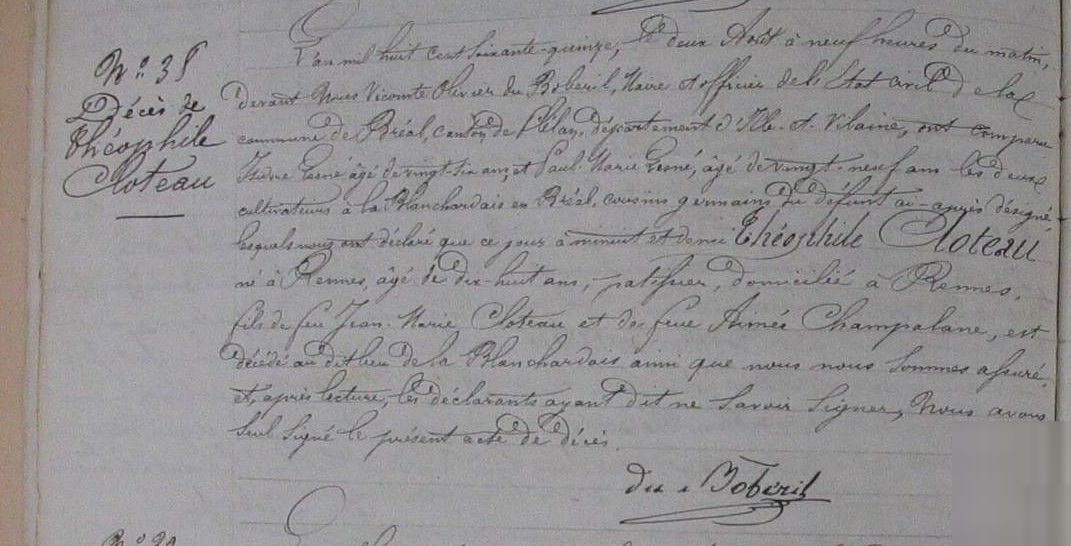 N° 38
Décès de
Théophile
Cloteau
L'an mil huit cent soixante-quinze, le deux Août à neuf heures du matin,
devant Nous Vicomte Olivier du Boberil, Maire et officier de l'État civil de la
commune de Bréal, canton de Plélan, département d'Ille-et-Vilaine, ont comparu
Gesné âgé de vingt-six ans, et Paul-Marie Gesné, âgé de vingt-neuf ans les deux
cultivateurs à la Blanchardais en Bréal, cousins germains du défunt ci-après désigné
lesquels nous ont déclaré que ce jour à minuit et demi Théophile Cloteau
né à Rennes, âgé de dix-huit ans, patissier, domicilié à Rennes,
fils de feu Jean-Marie Cloteau et de feue Aimée Champalane, est
décédé au dit lieu de la Blanchardais ainsi que nous nous sommes assuré,
Et, après lecture, les déclarants ayant dit ne savoir signer, Nous avons
seul signé le présent acte de décès.
du Boberil